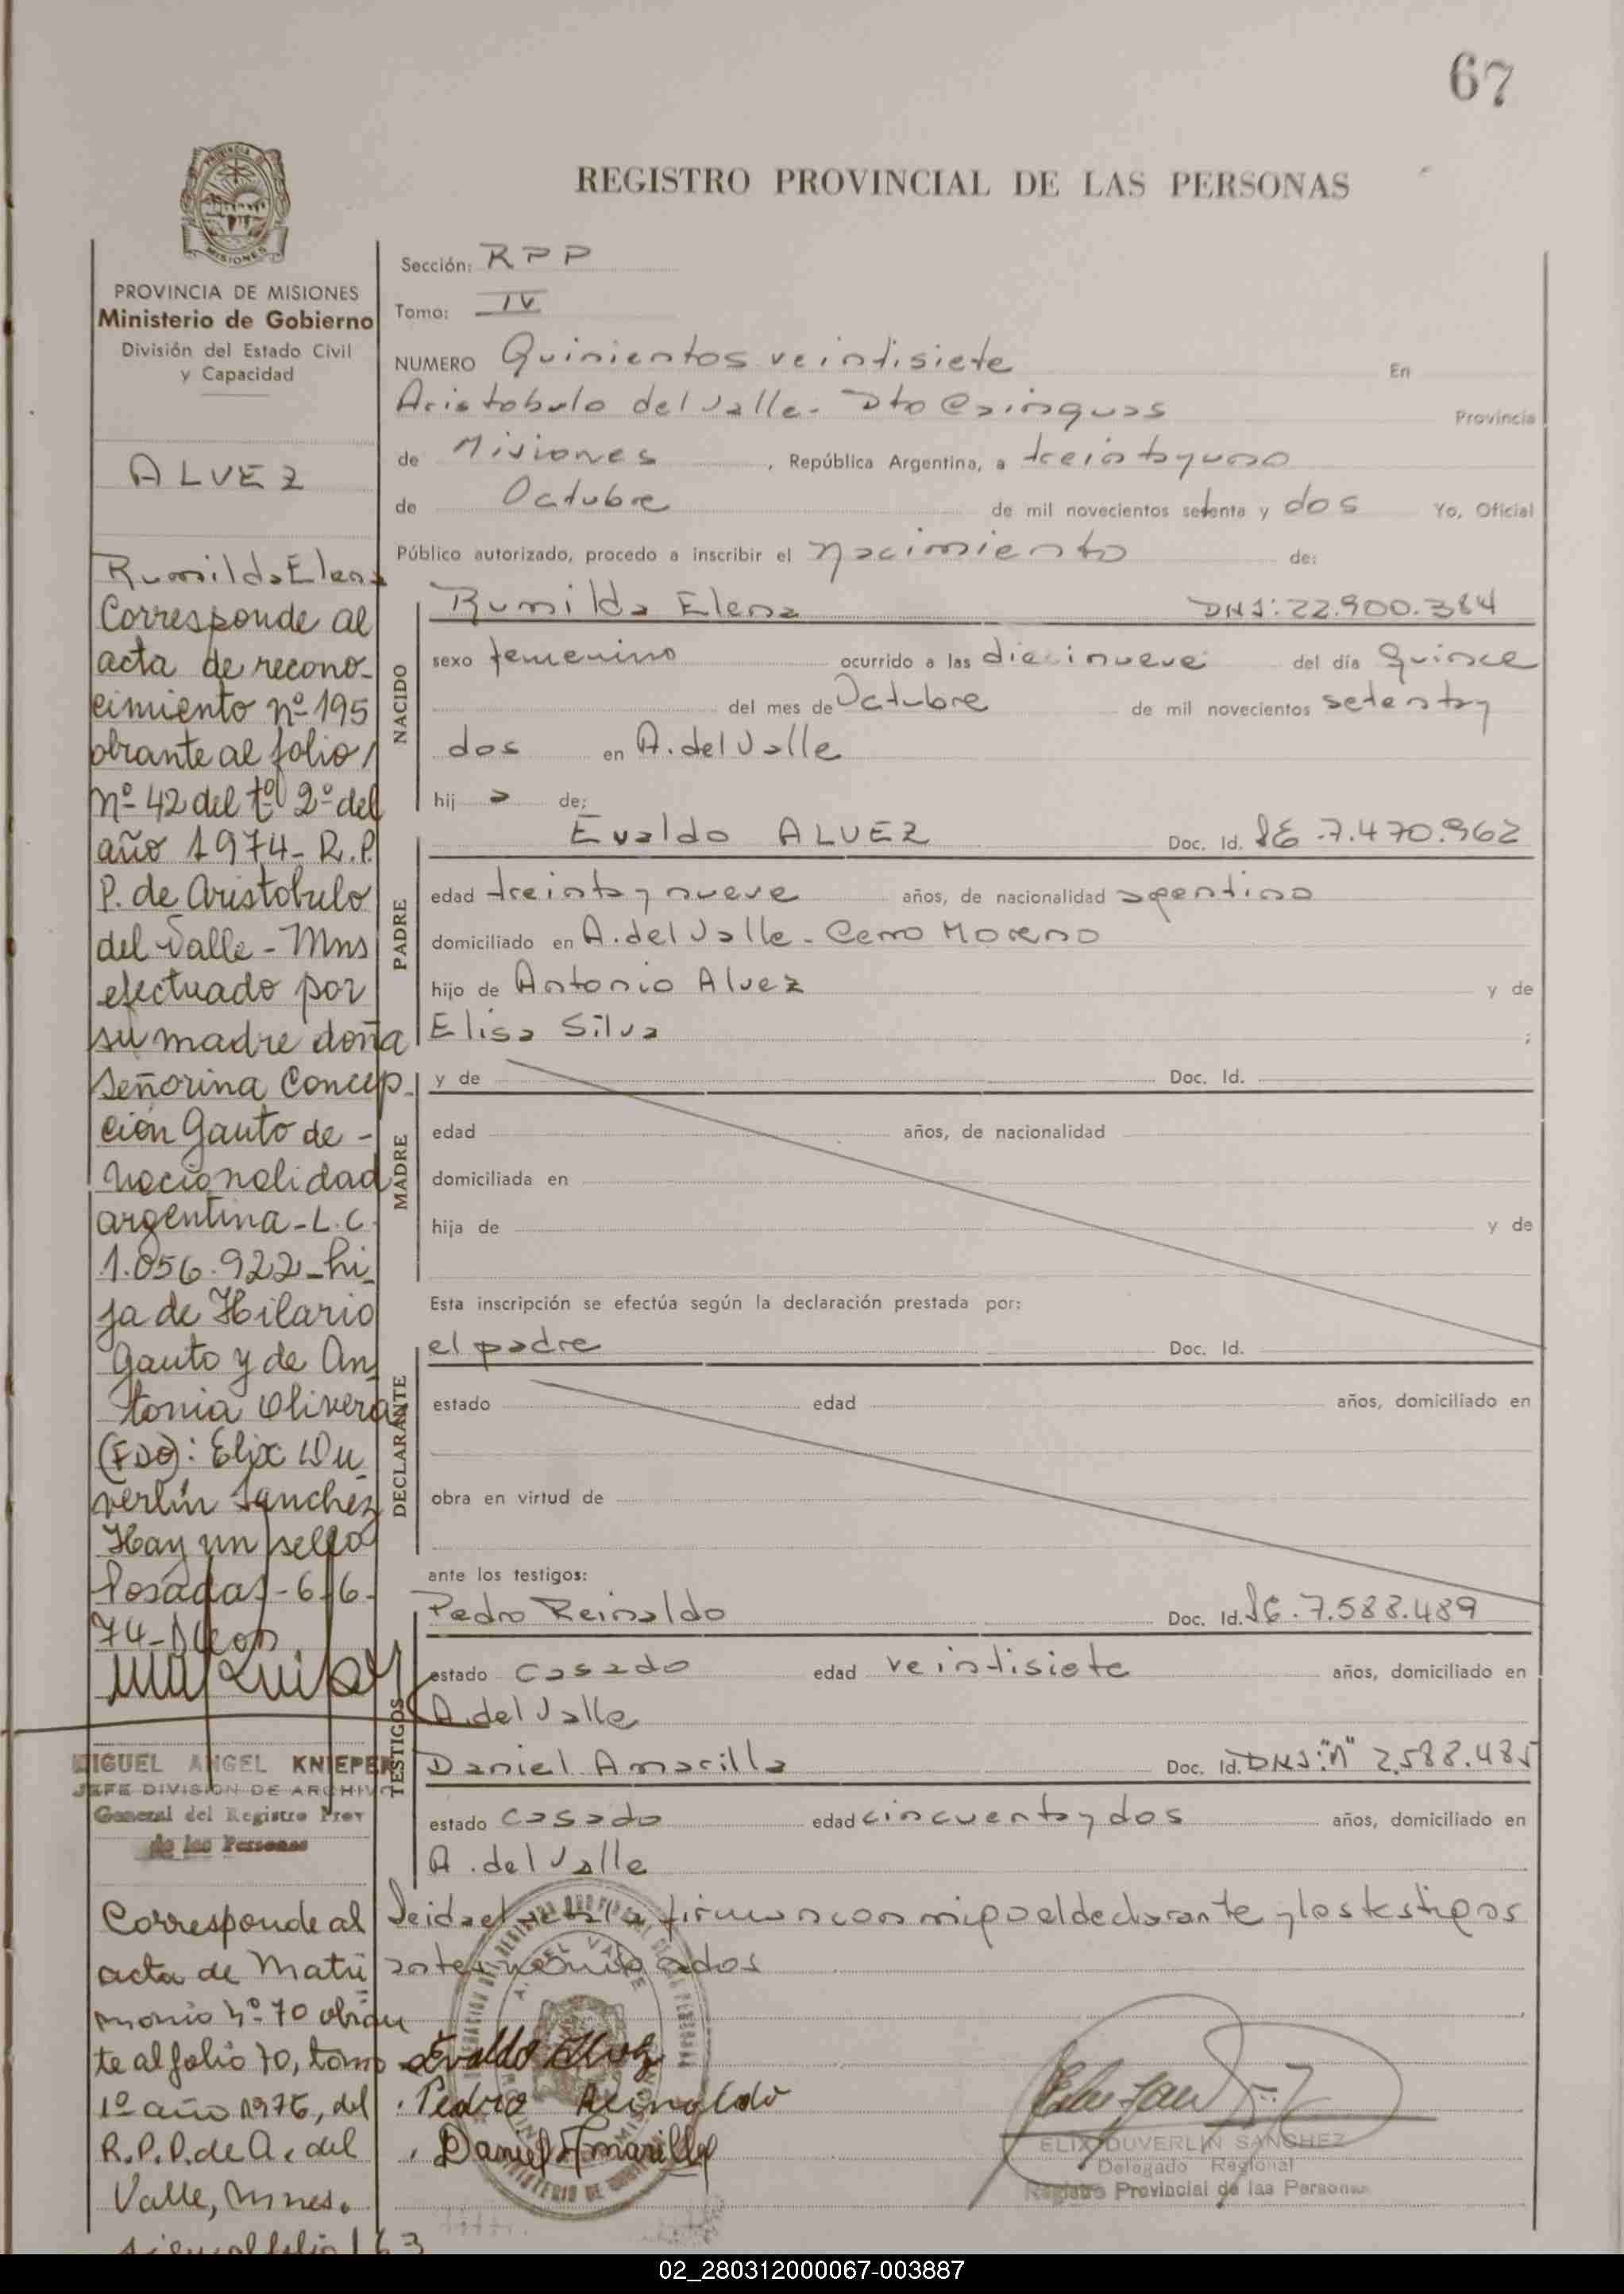 67
REGISTRO PROVINCIAL DE LAS PERSONAS
MISIONES
PROVINCIA DE MISIONES
Ministerio de Gobierno
División del Estado Civil
y Capacidad
ALVEZ
Rumilda Elena
Corresponde al
acta de recono-
cimiento nº 195
obrante al folio
nº 42 del tº 2º del
año 1974- R.P.
P. de Aristobulo
del Valle - Mns
efectuado por
su madre doña
Señorina Concep-
ción Gauto de -
nacionalidad
argentina - L.C.
1.056.922 - hi-
ja de Hilario
Gauto y de An-
tonia Olivera
(FDO): Elix Du-
verlin Sanchez
Hay un sello
Posadas - 6-6-
74-
MIGUEL ANGEL KNIEPER
JEFE DIVISION DE ARCHIVO
General del Registro Prov
de las Personas
Corresponde al
acta de Matri
monio Nº 70 obran
te al folio 70, tomo
1º año 1976, del
R.P.P. de A. del
Valle, Mnes.
Sección: RPP
Tomo: IV
NUMERO Quinientos veintisiete En
Aristobulo del Valle - Dto Cainguas Provincia
de Misiones, República Argentina, a treinta y uno
de Octubre de mil novecientos setenta y dos Yo, Oficial
Público autorizado, procedo a inscribir el nacimiento de:
NACIDO
Rumilda Elena DNI: 22.900.384
sexo femenino ocurrido a las diecinueve del día quince
del mes de Octubre de mil novecientos setenta y
dos en A. del Valle
hij a de:
PADRE
Evaldo ALVEZ Doc. Id. LE 7.470.962
edad treinta y nueve años, de nacionalidad agentino
domiciliado en A. del Valle - Cerro Moreno
hijo de Antonio Alvez y de
Elisa Silva ;
MADRE
y de Doc. Id.
edad años, de nacionalidad
domiciliada en
hija de y de
Esta inscripción se efectúa según la declaración prestada por:
DECLARANTE
el padre Doc. Id.
estado edad años, domiciliado en
obra en virtud de
ante los testigos:
TESTIGOS
Pedro Reinaldo Doc. Id. LE. 7.588.489
estado casado edad veintisiete años, domiciliado en
A. del Valle
Daniel Amarilla Doc. Id. DNI: "N" 2.588.485
estado casado edad cincuenta y dos años, domiciliado en
A. del Valle
Leida el acta la firman conmigo el declarante y los testigos
antes nombrados
Evaldo Alvez
Pedro Reinaldo
Daniel Amarilla
ELIX DUVERLIN SANCHEZ
Delegado Regional
Registro Provincial de las Personas
02_280312000067-003887